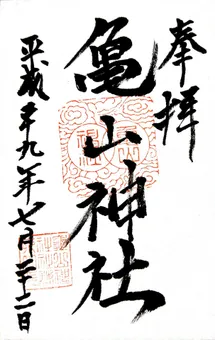 奉拝
亀山神社
平成二十九年七月二十二日